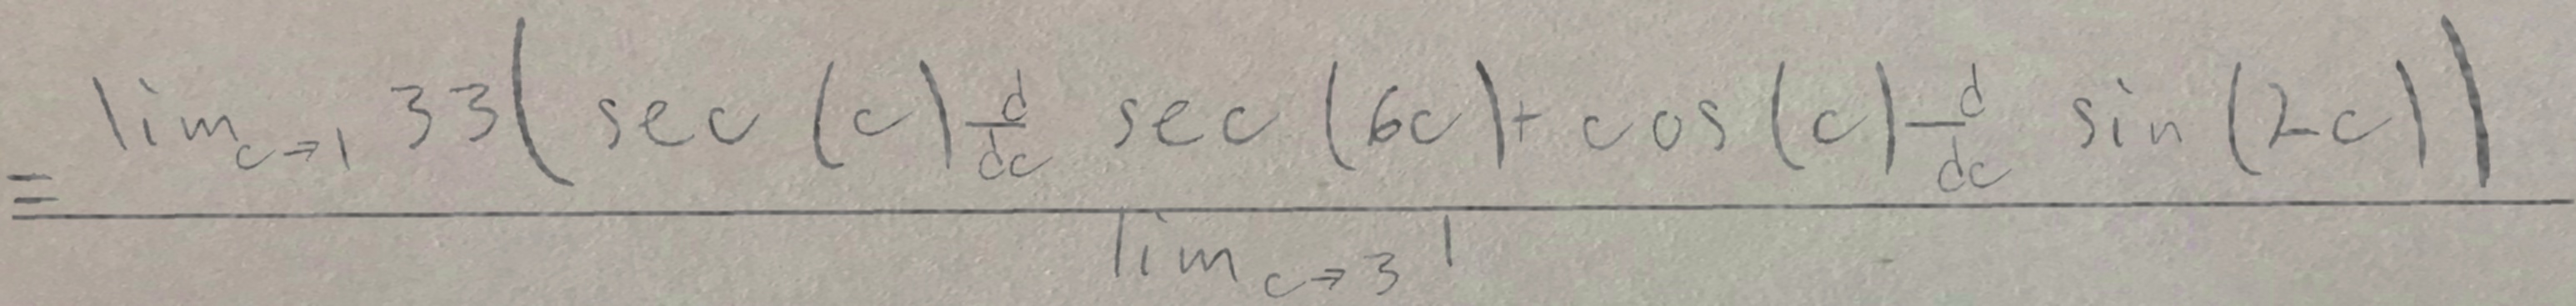 = \frac{\lim_{c \to 1} 33 \left( \sec(c) \frac{d}{dc} \sec(6c) + \cos(c) \frac{d}{dc} \sin(2c) \right)}{\lim_{c \to 3} 1}